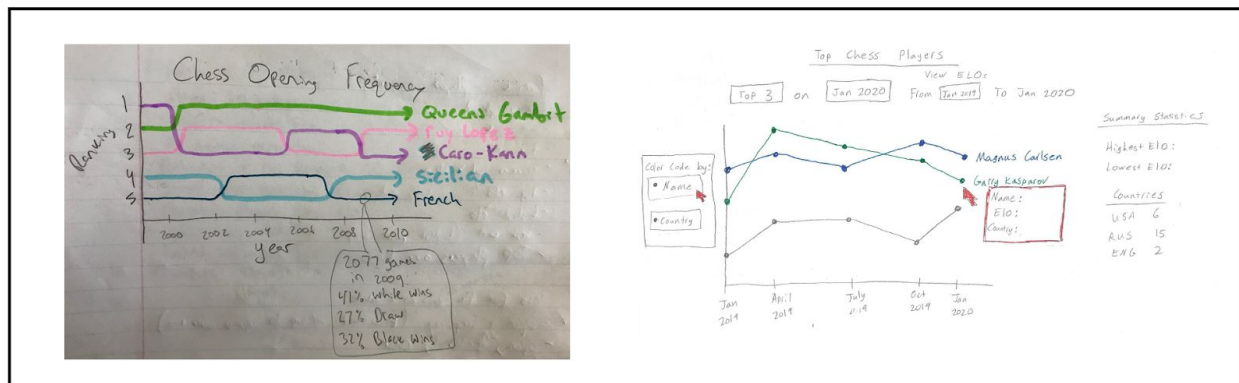 Chess Opening Frequency
Ranking
1
2
3
4
5
Queens Gambit
ruy Lopez
Caro-Kann
Sicilian
French
2000 2002 2004 2006 2008 2010
year
2077 games
in 2009
41% White wins
27% Draw
32% Black wins
Top Chess Players
View ELO:
Top 3 on Jan 2020 From Jan 2019 To Jan 2020
Color Code by:
Name
Country
Magnus Carlsen
Garry Kasparov
Name:
Elo:
Country:
Jan 2019
April 2019
July 2019
Oct 2019
Jan 2020
Summary Statistics
Highest Elo:
Lowest Elo:
Countries
USA 6
RUS 15
ENG 2